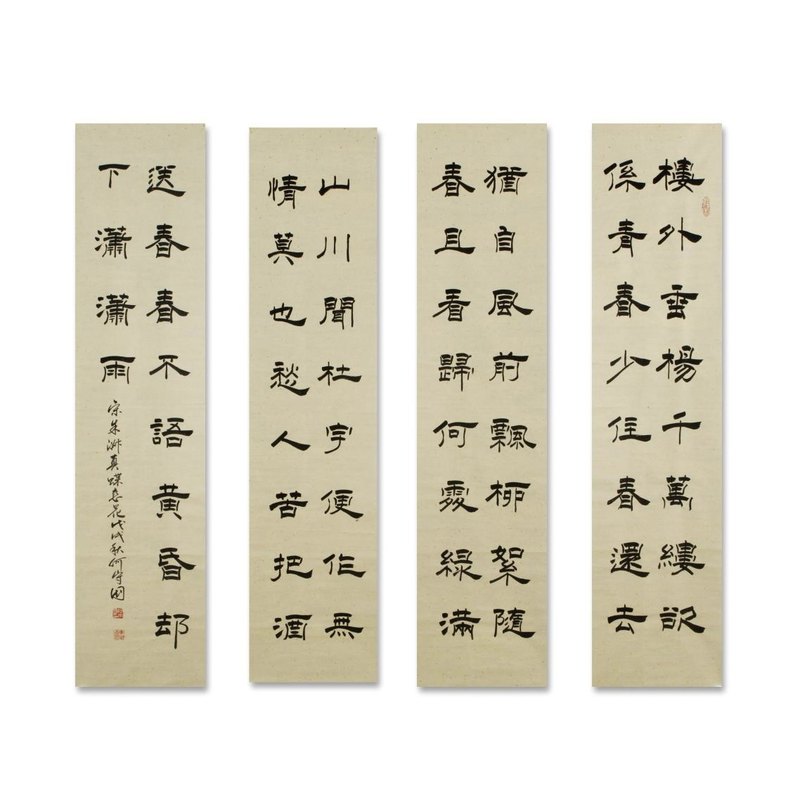 樓外垂楊千萬縷欲
係青春少住春還去
猶自風前飄柳絮隨
春且看歸何處綠滿
山川聞杜宇便作無
情莫也愁人苦把酒
送春春不語黄昏却
下瀟瀟雨
宋朱淑真蝶恋花戊戌秋何守国